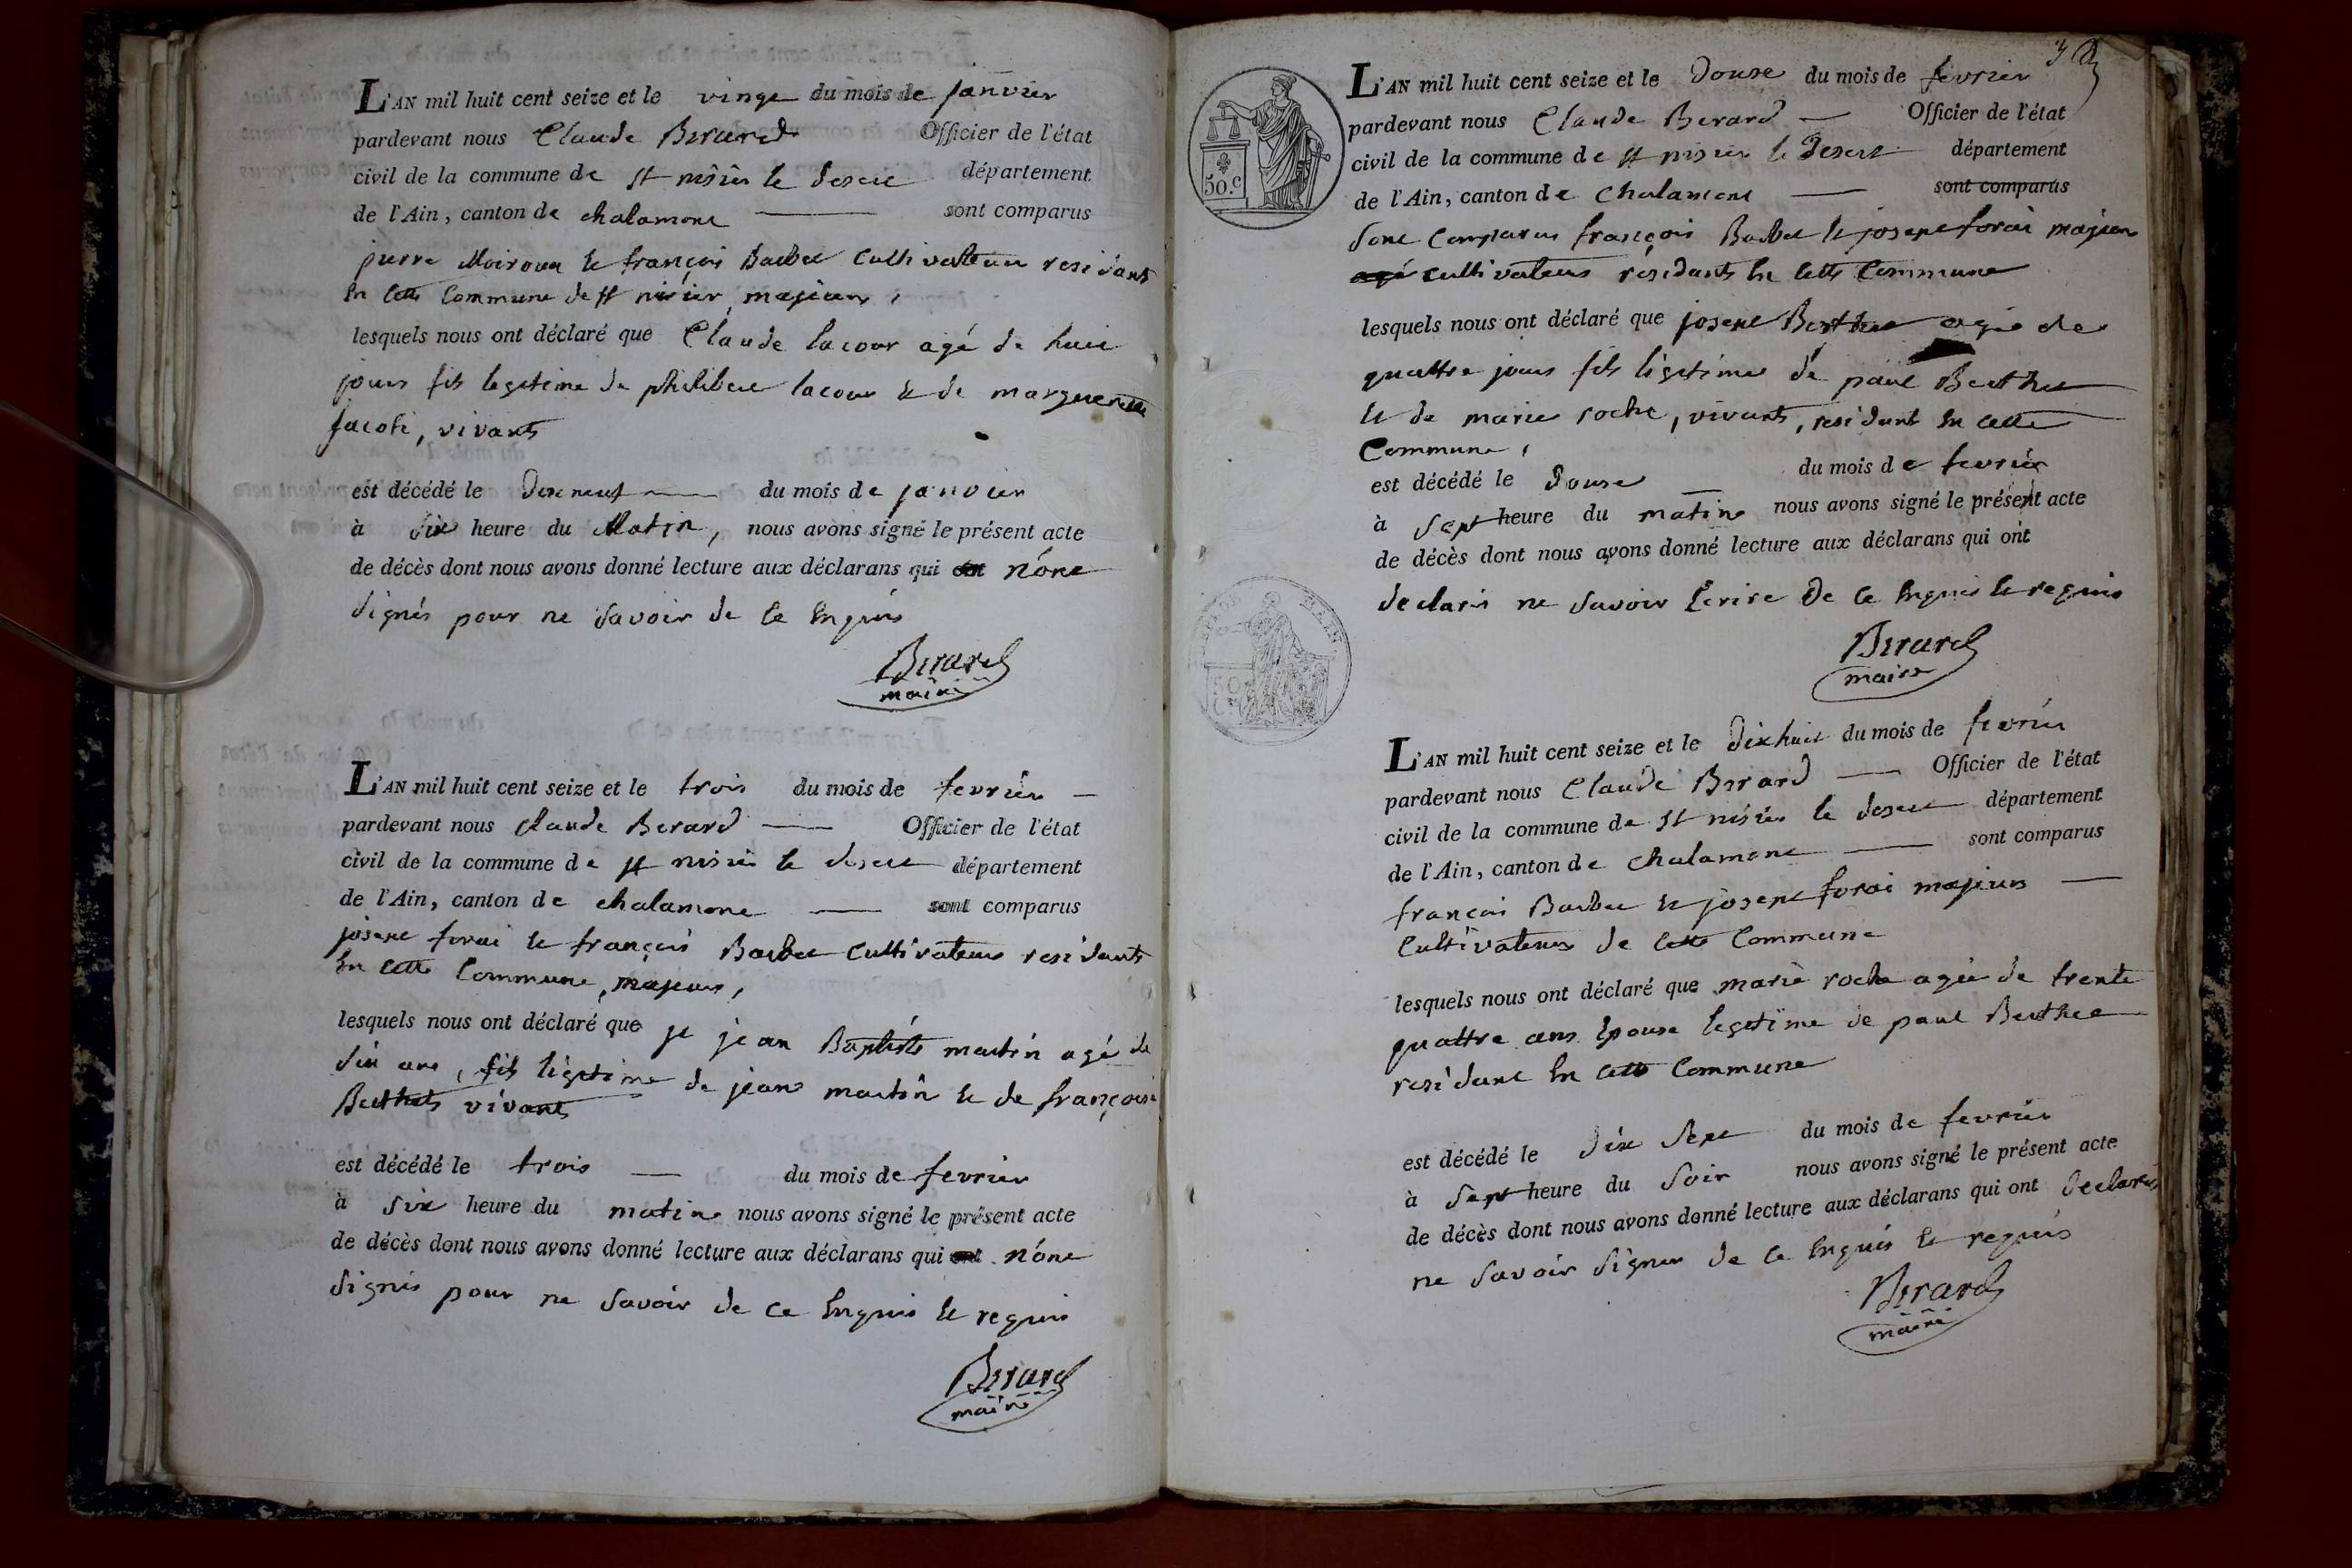 L'AN mil huit cent seize et le vingt du mois de janvier
pardevant nous Claude Berard Officier de l'état
civil de la commune de st nisier le desert département
de l'Ain, canton de chalamont sont comparus
pierre Moiroux et françois Barbet cultivateurs residants
en cette Commune de st nisier, majeurs,
lesquels nous ont déclaré que Claude lacour agé de huit
jours fils legitime de philibert lacour et de marguerite
, vivants
est décédé le dix neuf du mois de janvier
à six heure du Matin, nous avons signé le présent acte
de décès dont nous avons donné lecture aux déclarans qui ont n'ont
signés pour ne savoir de ce enquis
Berard
maire
L'AN mil huit cent seize et le trois du mois de fevrier
pardevant nous claude Berard Officier de l'état
civil de la commune de st nisier le desert département
de l'Ain, canton de chalamont sont comparus
josept forai et françois Barbet cultivateurs residants
en cette Commune, majeurs,
lesquels nous ont déclaré que jean Baptiste martin agé de
six ans, fils legitime de jean martin et de françoise
Berthet vivants
est décédé le trois du mois de fevrier
à six heure du matin nous avons signé le présent acte
de décès dont nous avons donné lecture aux déclarans qui ont n'ont
signés pour ne savoir de ce enquis et requis
Berard
maire
3
L'AN mil huit cent seize et le douse du mois de fevrier
pardevant nous Claude Berard Officier de l'état
civil de la commune de st nisier le Desert département
de l'Ain, canton de Chalamont sont comparus
50.c
sont Comparus françois Barbet et josept forai majeurs
agé cultivateurs résidants en cette Commune
lesquels nous ont déclaré que josept Berthet agé de
quattre jours fils légitime de paul Berthet
et de marie roche, vivants, residant en cette
Commune,
est décédé le douse du mois de fevrier
à sept heure du matin nous avons signé le présent acte
de décès dont nous avons donné lecture aux déclarans qui ont
declarés ne savoir Ecrire de ce enquis et requis
Berard
maire
L'AN mil huit cent seize et le dixhuit du mois de fevrier
pardevant nous Claude Berard Officier de l'état
civil de la commune de st nisier le desert département
de l'Ain, canton de chalamont sont comparus
françois Barbet et josept forai majeurs
Cultivateurs de cette Commune
lesquels nous ont déclaré que marie roche agée de trente
quattre ans Epouse legitime de paul Berthet
residant en cette Commune
est décédé le dix sept du mois de fevrier
à sept heure du soir nous avons signé le présent acte
de décès dont nous avons donné lecture aux déclarans qui ont declarés
ne savoir signer de ce enquis et requis
Berard
maire